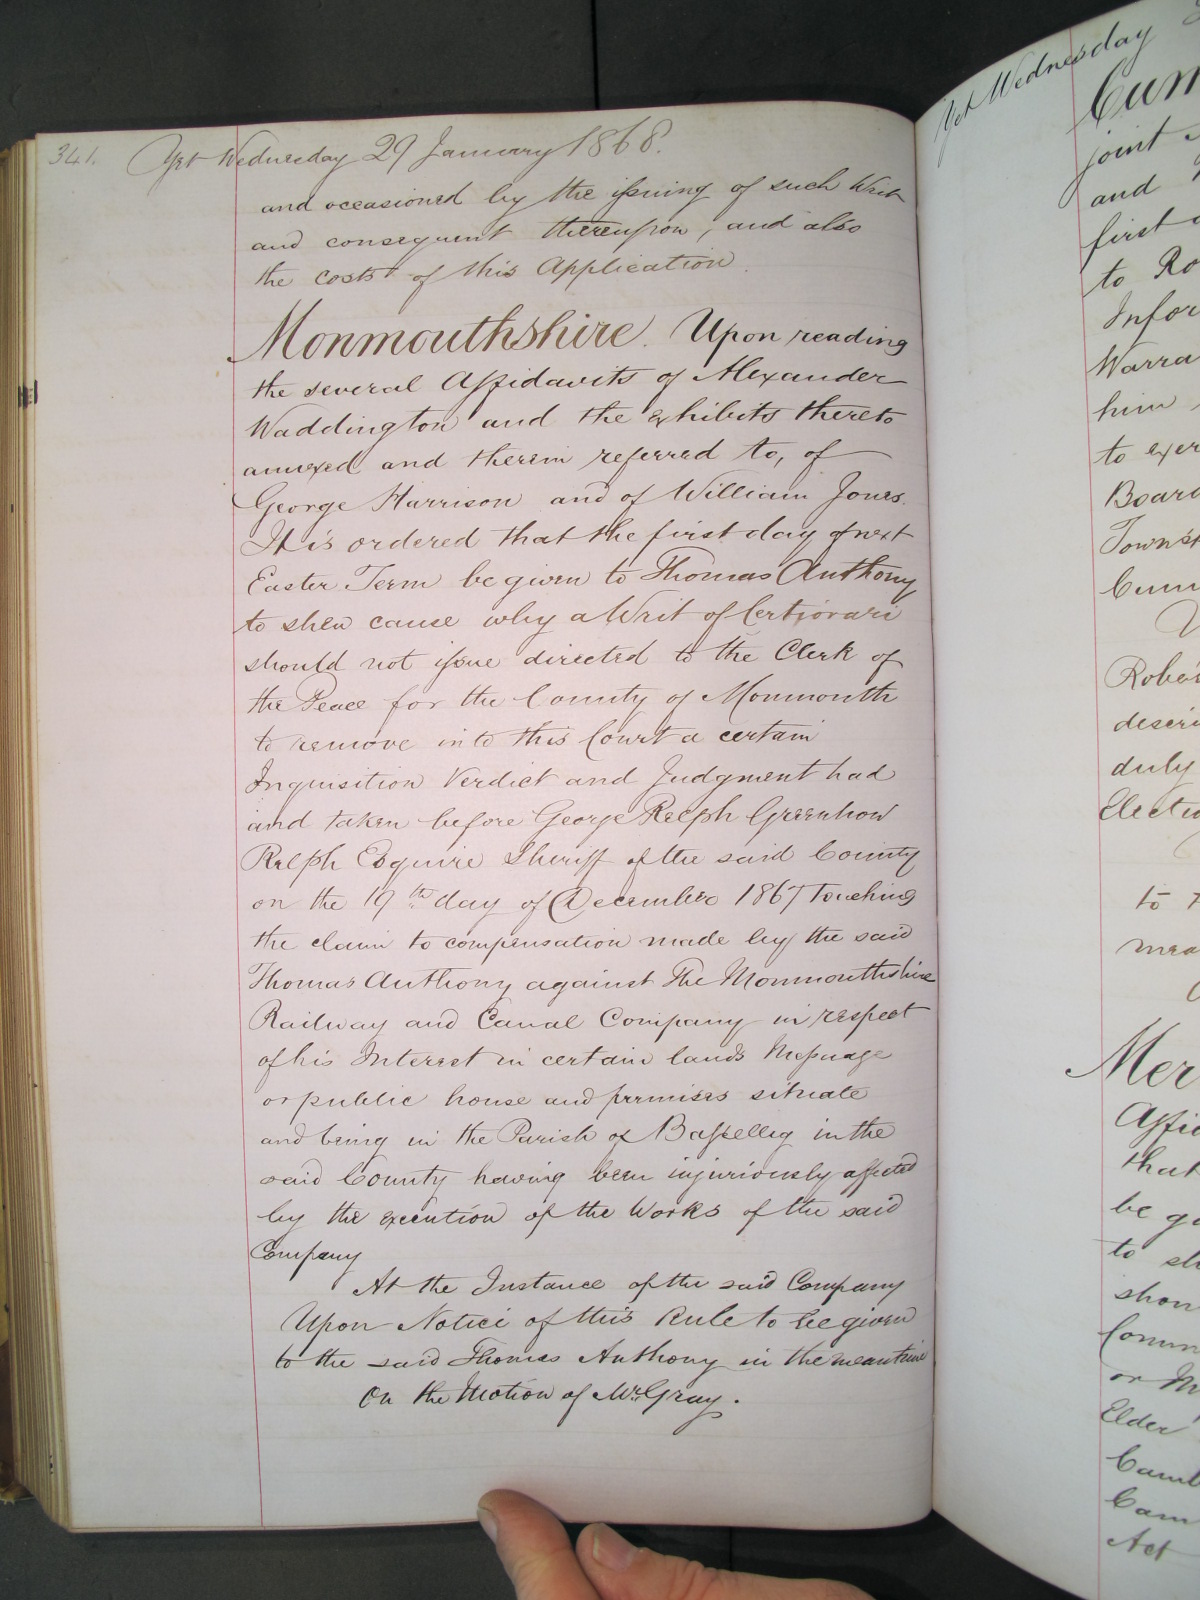 341.
Yet Wednesday 29 January 1868.
and occasioned by the issuing of such Writ
and consequent thereupon, and also
the costs of this Application.
Monmouthshire. Upon reading
the several Affidavits of Alexander
Waddington and the exhibits thereto
annexed and therein referred to, of
George Harrison and of William Jones.
It is ordered that the first day of next
Easter Term be given to Thomas Anthony
to shew cause why a Writ of Certiorari
should not issue directed to the Clerk of
the Peace for the County of Monmouth
to remove into this Court a certain
Inquisition Verdict and Judgment had
and taken before George Relph Greenhow
Relph Esquire Sheriff of the said County
on the 19th day of December 1867 touching
the claim to compensation made by the said
Thomas Anthony against The Monmouthshire
Railway and Canal Company in respect
of his Interest in certain lands Messuage
or public house and premises situate
and being in the Parish of Basselleg in the
said County having been injuriously affected
by the execution of the Works of the said
Company
At the Instance of the said Company
Upon Notice of this Rule to be given
to the said Thomas Anthony in the meantime
On the Motion of Mr. Gray.
Yet Wednesday
Cum
joint
and
first
to Ro
Infor
Warra
him
to exer
Board
Townsh
Cum
Rober
descri
duly
Electi
to
mea
Mer
Affi
that
be gi
to sh
shou
Comm
or M
Elder
Camb
Cam
Act